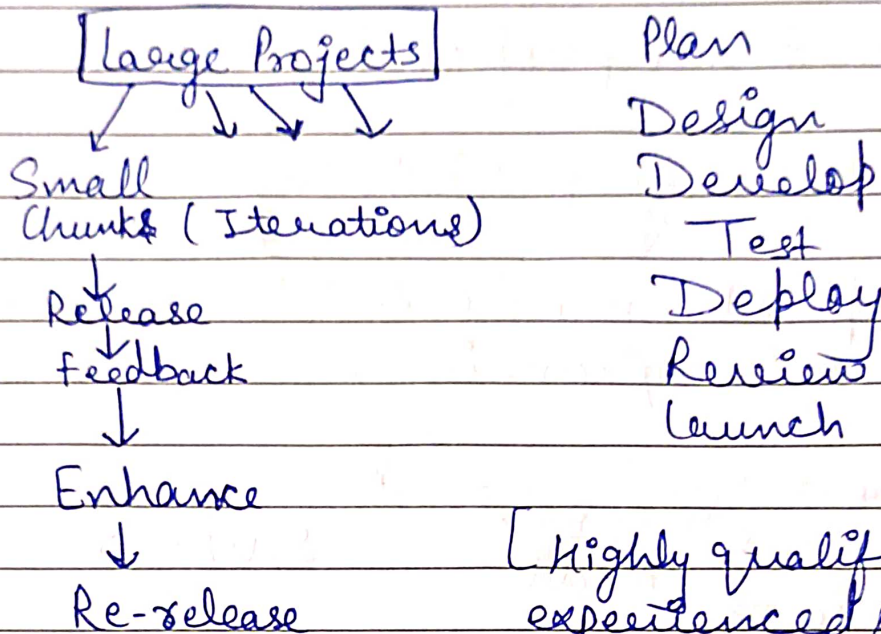 Large Projects
Small
Chunks (Iterations)
Release
feedback
Enhance
Re-release
Plan
Design
Develop
Test
Deploy
Review
Launch
[Highly qualif
experienced